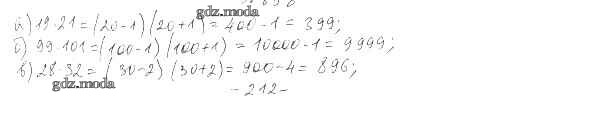 gdz.moda
а) 19·21=(20-1)(20+1)=400-1=399;
б) 99·101=(100-1)(100+1)=10000-1=9999;
в) 28·32=(30-2)(30+2)=900-4=896;
gdz.moda
-212-